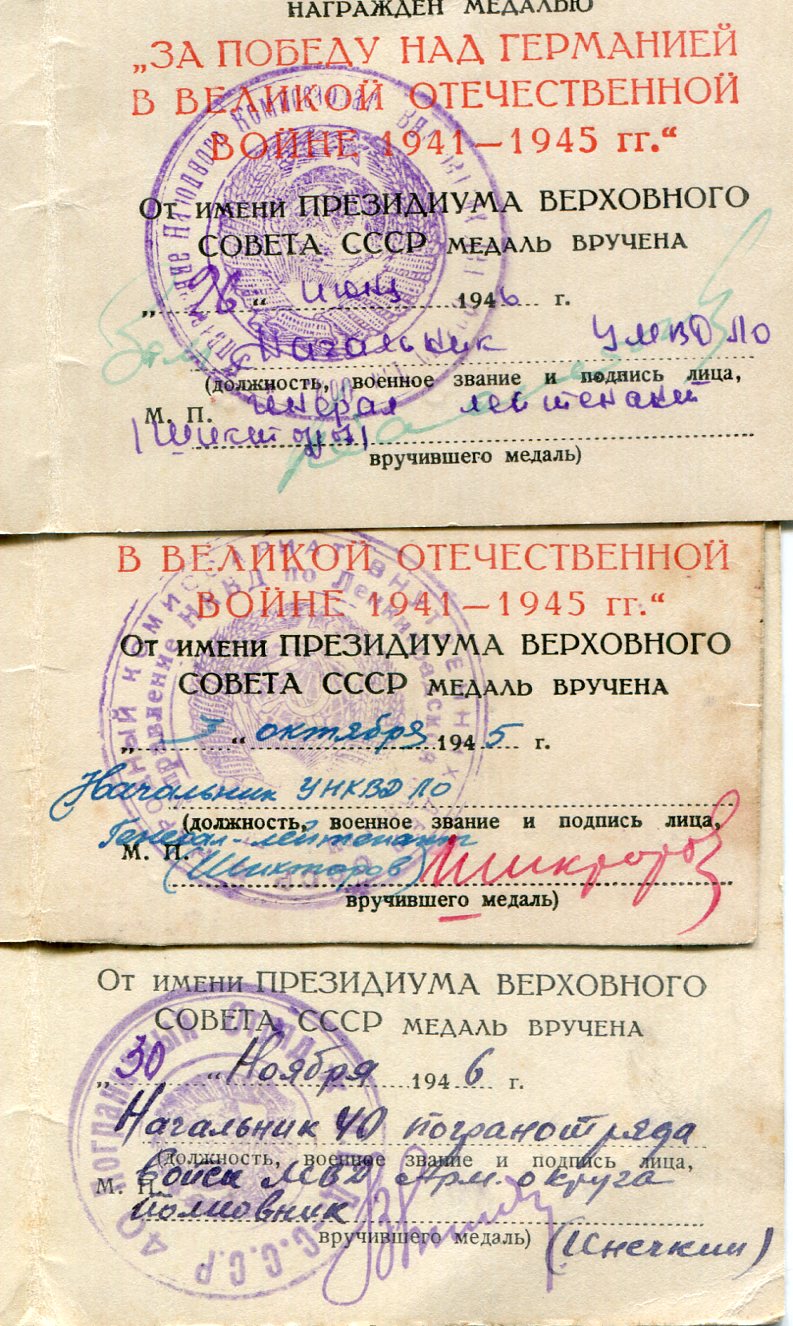 НАГРАЖДЕН МЕДАЛЬЮ
„ЗА ПОБЕДУ НАД ГЕРМАНИЕЙ
В ВЕЛИКОЙ ОТЕЧЕСТВЕННОЙ
ВОЙНЕ 1941—1945 гг.“
От имени ПРЕЗИДИУМА ВЕРХОВНОГО
СОВЕТА СССР МЕДАЛЬ ВРУЧЕНА
„26“ июня 1946 г.
Начальник УМВД ЛО
(должность, военное звание и подпись лица,
М. П. лейтенант
(Шикторов)
вручившего медаль)
В ВЕЛИКОЙ ОТЕЧЕСТВЕННОЙ
ВОЙНЕ 1941—1945 гг.“
От имени ПРЕЗИДИУМА ВЕРХОВНОГО
СОВЕТА СССР МЕДАЛЬ ВРУЧЕНА
„ “ октября 1945 г.
Начальник УНКВД ЛО
(должность, военное звание и подпись лица,
Генерал-лейтенант
М. П. (Шикторов) Шикторов
вручившего медаль)
От имени ПРЕЗИДИУМА ВЕРХОВНОГО
СОВЕТА СССР МЕДАЛЬ ВРУЧЕНА
„30“ Ноября 1946 г.
Начальник 40 погранотряда
(должность, военное звание и подпись лица,
М. П. Войск МВД Арм. округа
полковник
вручившего медаль) (Инечкин)